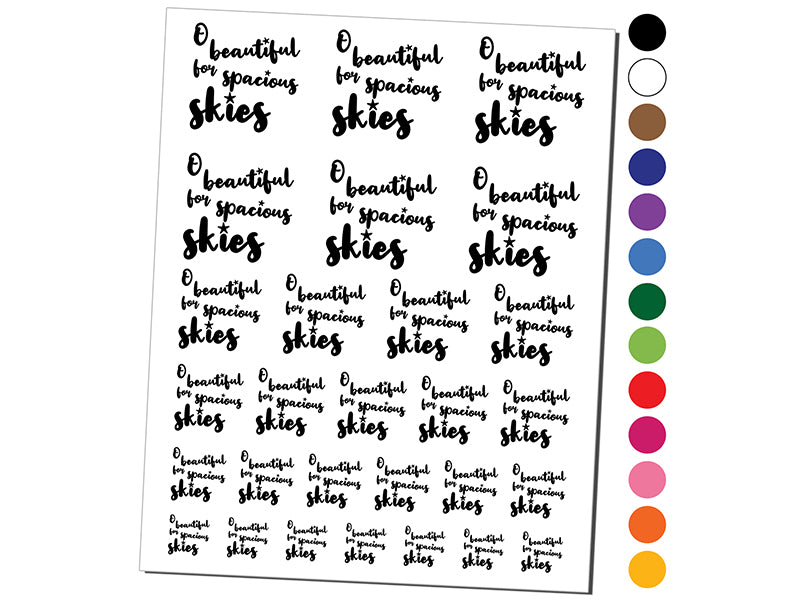 O
beautiful
for spacious
skies
O
beautiful
for spacious
skies
O
beautiful
for spacious
skies
O
beautiful
for spacious
skies
O
beautiful
for spacious
skies
O
beautiful
for spacious
skies
O
beautiful
for spacious
skies
O
beautiful
for spacious
skies
O
beautiful
for spacious
skies
O
beautiful
for spacious
skies
O
beautiful
for spacious
skies
O
beautiful
for spacious
skies
O
beautiful
for spacious
skies
O
beautiful
for spacious
skies
O
beautiful
for spacious
skies
O
beautiful
for spacious
skies
O
beautiful
for spacious
skies
O
beautiful
for spacious
skies
O
beautiful
for spacious
skies
O
beautiful
for spacious
skies
O
beautiful
for spacious
skies
O
beautiful
for spacious
skies
O
beautiful
for spacious
skies
O
beautiful
for spacious
skies
O
beautiful
for spacious
skies
O
beautiful
for spacious
skies
O
beautiful
for spacious
skies
O
beautiful
for spacious
skies